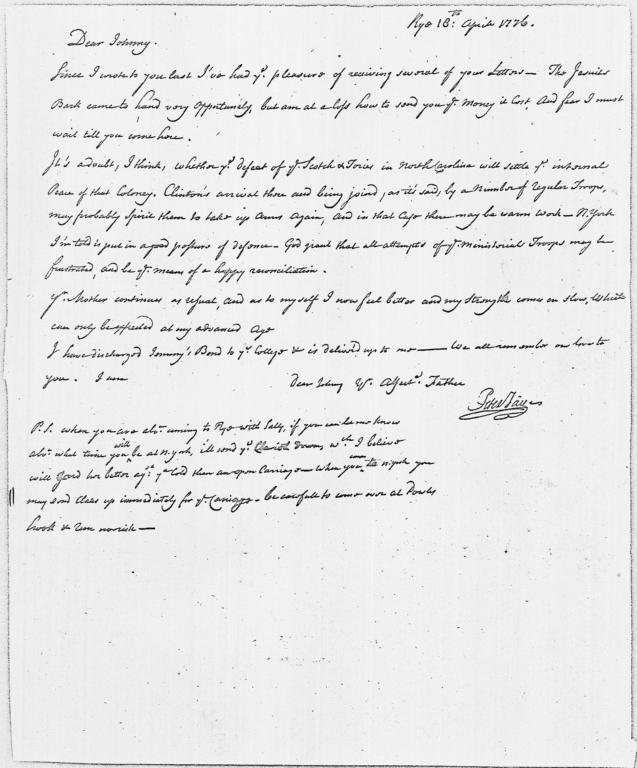 Rye 18:th April 1776.
Dear Johnny.
Since I wrote to you last I've had ye. pleasure of receiving several of your Letters — The Jesuits
Bark came to hand very opportunely, but am at a loss how to send you ye. Money it Cost, And fear I must
wait till you come here.
It's a doubt, I think, whether ye. defeat of ye. Scotch & Tories in North Carolina will settle ye. internal
Peace of that Coloney. Clinton's arrival there and being joind, as it's said, by a Number of Regular Troops,
may probably Spirit them to take up Arms Again, And in that Case there may be warm work — N. York
I'm told is put in a good posture of defence — God grant that all attempts of ye. Ministerial Troops may be
frustrated, and be ye. means of a happy reconciliation.
Yr. Mother continues as usual, and as to my self I now feel better and my Strength comes on slow, which
can only be expected at my advanced Age
I have discharged Jemmy's Bond to ye. College & is deliver'd up to me — We all remember our love to
you. I am
Dear Johny Yr. Affect. Father
Peter Jay
P.S. when you are abt. coming to Rye with Sally, if you can let me know
abt. what time you will be at N. york, I'll send ye. down, wch. I believe
will Guard her better agst. ye. Cold than an open Carriage — when you come to N. york you
may send Claes up immediately for ye. Carriage — be carefull to come over at Powles
hook & run no risk —